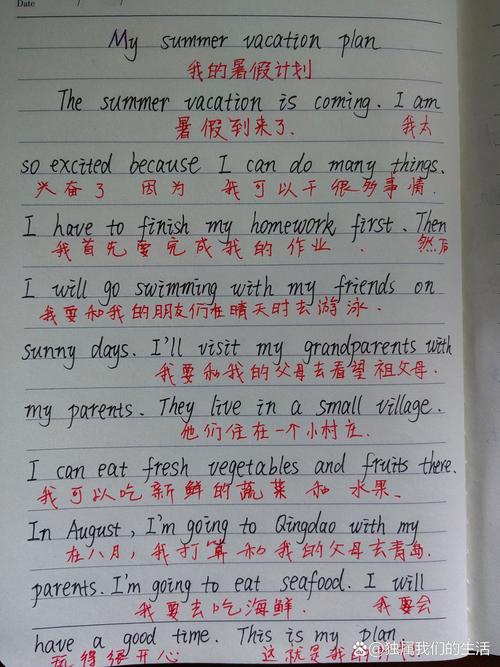 Date / /
My summer vacation plan
我的暑假计划
The summer vacation is coming. I am
暑假到来了. 我太
so excited because I can do many things.
兴奋了 因为 我可以干很多事情.
I have to finish my homework first. Then
我首先要完成我的作业. 然后
I will go swimming with my friends on
我要和我的朋友们在晴天时去游泳.
sunny days. I'll visit my grandparents with
我要和我的父母去看望祖父母.
my parents. They live in a small village.
他们住在一个小村庄.
I can eat fresh vegetables and fruits there.
我可以吃新鲜的蔬菜 和 水果、
In August, I'm going to Qingdao with my
在八月, 我打算和我的父母去青岛.
parents. I'm going to eat seafood. I will
我要去吃海鲜. 我要会
have a good time. This is my plan.
玩得很开心 这就是我的
@独属我们的生活